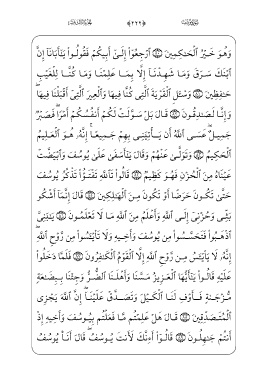 وَهُوَ خَيْرُ ٱلْحَٰكِمِينَ ۝ ٱرْجِعُوٓا۟ إِلَىٰٓ أَبِيكُمْ فَقُولُوا۟ يَٰٓأَبَانَآ إِنَّ
ٱبْنَكَ سَرَقَ وَمَا شَهِدْنَآ إِلَّا بِمَا عَلِمْنَا وَمَا كُنَّا لِلْغَيْبِ
حَٰفِظِينَ ۝ وَسْـَٔلِ ٱلْقَرْيَةَ ٱلَّتِى كُنَّا فِيهَا وَٱلْعِيرَ ٱلَّتِىٓ أَقْبَلْنَا فِيهَا ۖ
وَإِنَّا لَصَٰدِقُونَ ۝ قَالَ بَلْ سَوَّلَتْ لَكُمْ أَنفُسُكُمْ أَمْرًا ۖ فَصَبْرٌ
جَمِيلٌ ۖ عَسَى ٱللَّهُ أَن يَأْتِيَنِى بِهِمْ جَمِيعًا ۚ إِنَّهُۥ هُوَ ٱلْعَلِيمُ
ٱلْحَكِيمُ ۝ وَتَوَلَّىٰ عَنْهُمْ وَقَالَ يَٰٓأَسَفَىٰ عَلَىٰ يُوسُفَ وَٱبْيَضَّتْ
عَيْنَاهُ مِنَ ٱلْحُزْنِ فَهُوَ كَظِيمٌ ۝ قَالُوا۟ تَٱللَّهِ تَفْتَؤُا۟ تَذْكُرُ يُوسُفَ
حَتَّىٰ تَكُونَ حَرَضًا أَوْ تَكُونَ مِنَ ٱلْهَٰلِكِينَ ۝ قَالَ إِنَّمَآ أَشْكُوا۟
بَثِّى وَحُزْنِىٓ إِلَى ٱللَّهِ وَأَعْلَمُ مِنَ ٱللَّهِ مَا لَا تَعْلَمُونَ ۝ يَٰبَنِىَّ
ٱذْهَبُوا۟ فَتَحَسَّسُوا۟ مِن يُوسُفَ وَأَخِيهِ وَلَا تَا۟يْـَٔسُوا۟ مِن رَّوْحِ ٱللَّهِ ۖ
إِنَّهُۥ لَا يَا۟يْـَٔسُ مِن رَّوْحِ ٱللَّهِ إِلَّا ٱلْقَوْمُ ٱلْكَٰفِرُونَ ۝ فَلَمَّا دَخَلُوا۟
عَلَيْهِ قَالُوا۟ يَٰٓأَيُّهَا ٱلْعَزِيزُ مَسَّنَا وَأَهْلَنَا ٱلضُّرُّ وَجِئْنَا بِبِضَٰعَةٍ
مُّزْجَىٰةٍ فَأَوْفِ لَنَا ٱلْكَيْلَ وَتَصَدَّقْ عَلَيْنَآ ۖ إِنَّ ٱللَّهَ يَجْزِى
ٱلْمُتَصَدِّقِينَ ۝ قَالَ هَلْ عَلِمْتُم مَّا فَعَلْتُم بِيُوسُفَ وَأَخِيهِ إِذْ
أَنتُمْ جَٰهِلُونَ ۝ قَالُوٓا۟ أَءِنَّكَ لَأَنتَ يُوسُفُ ۖ قَالَ أَنَا۠ يُوسُفُ